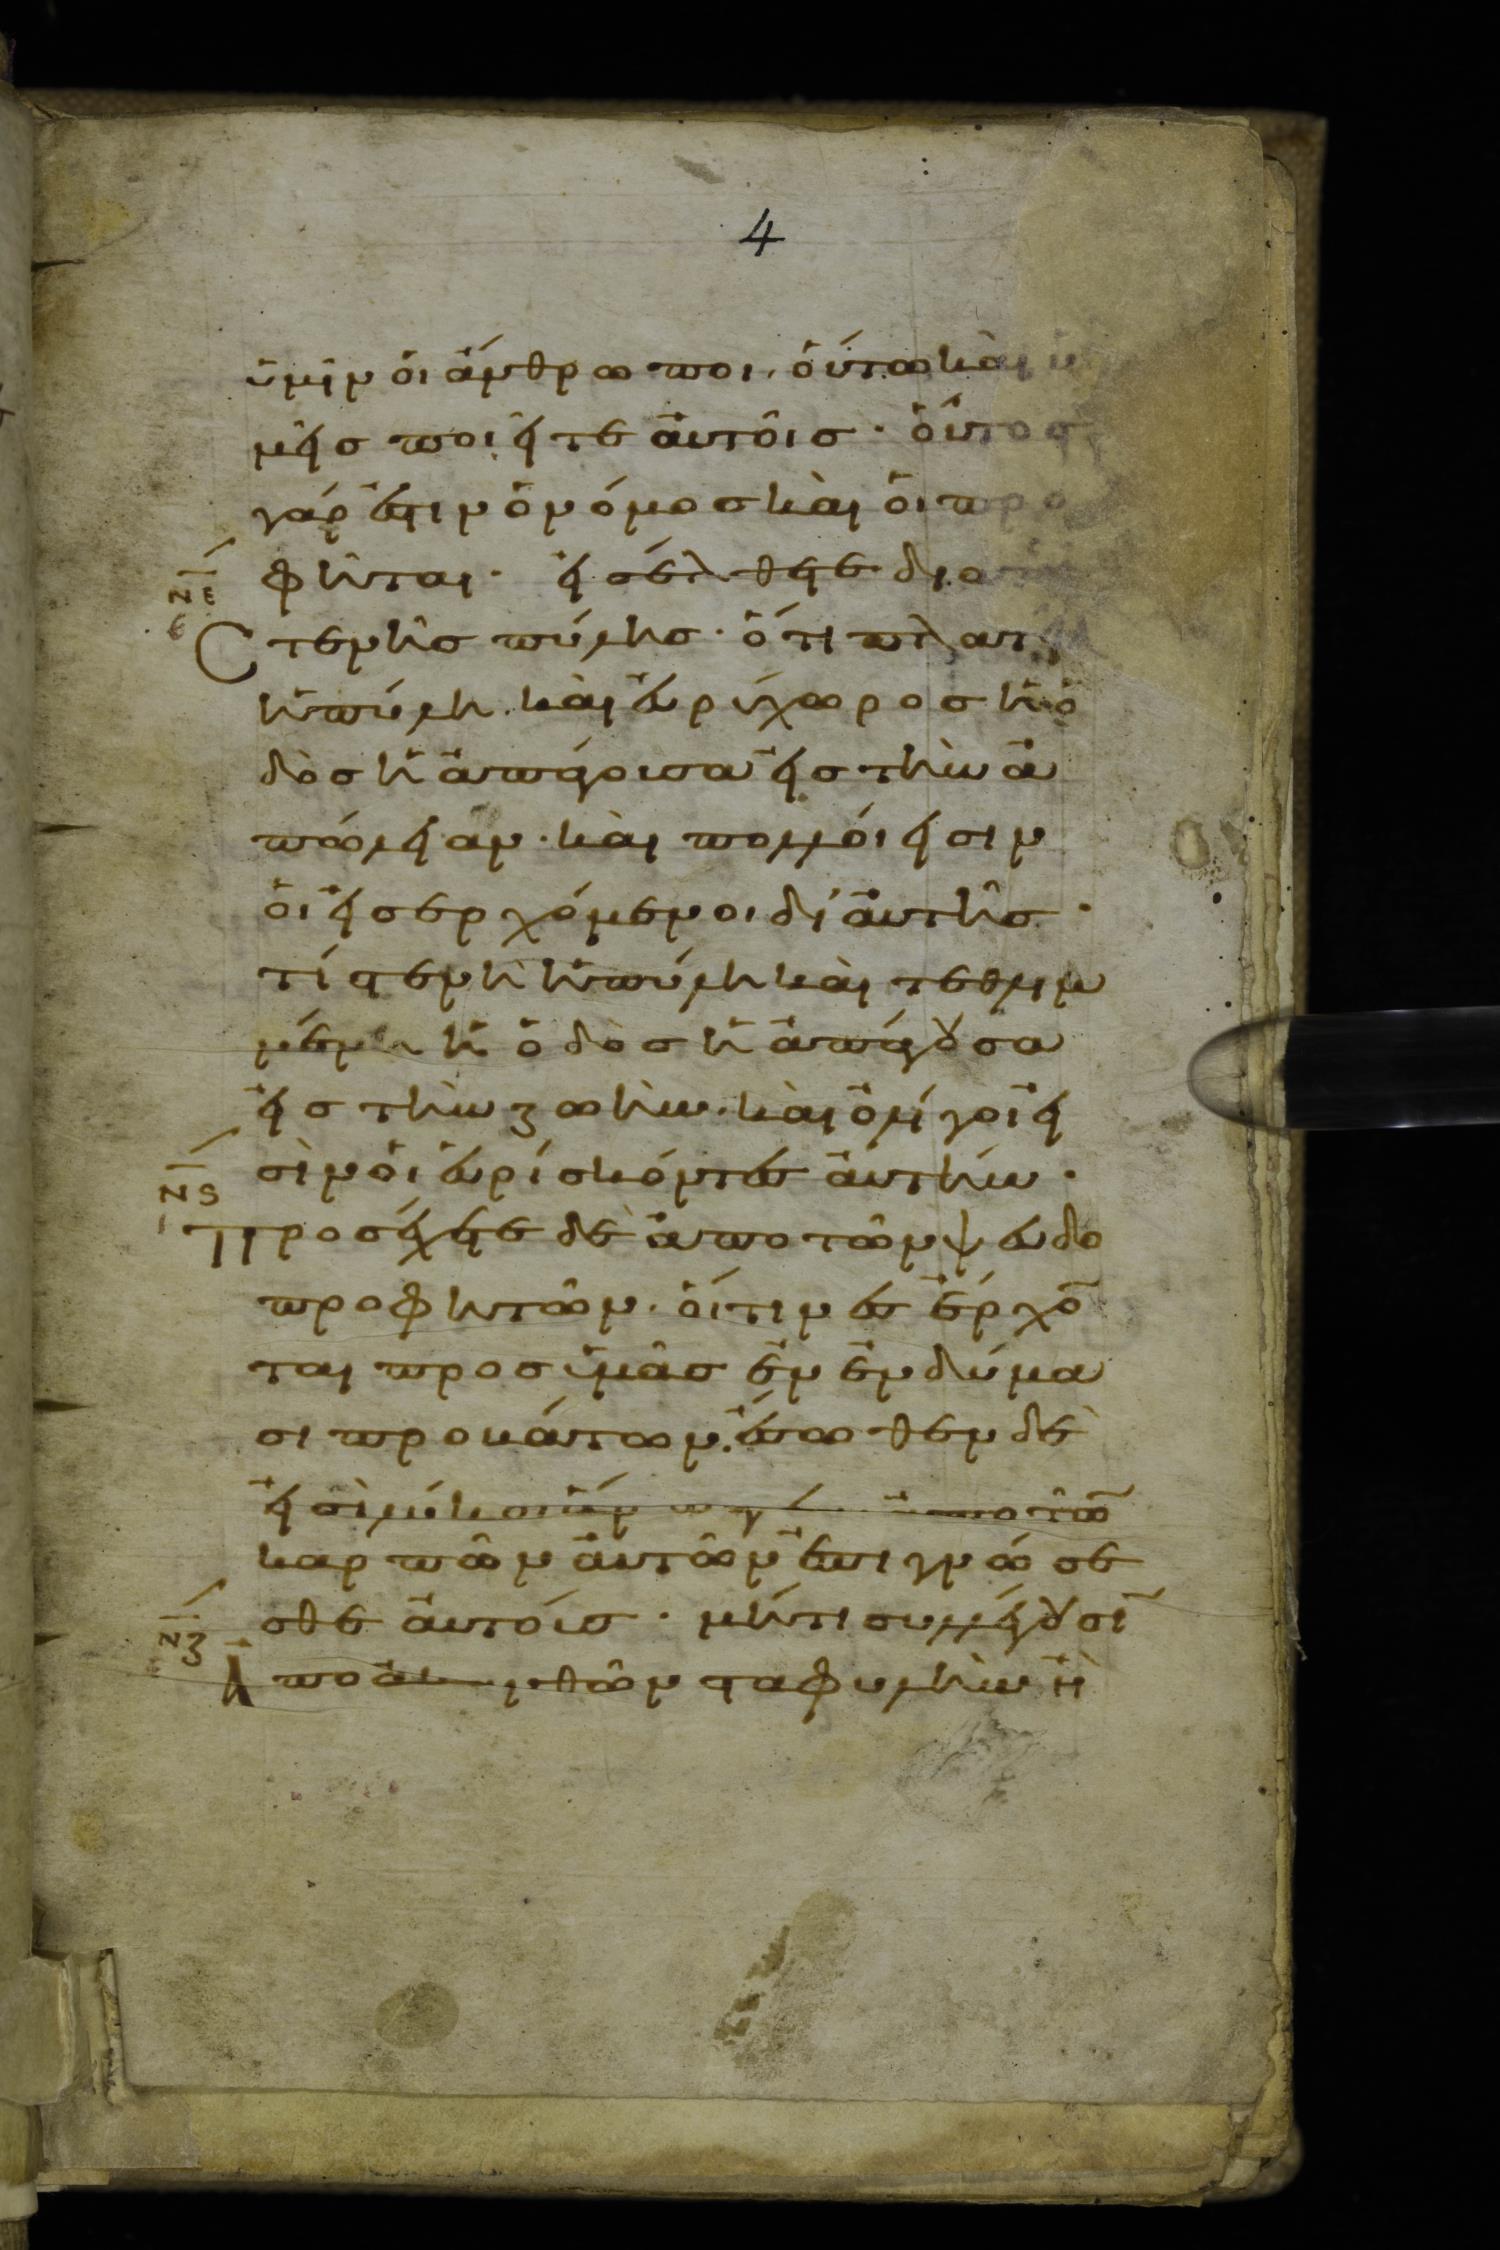 4
ὑμῖν ὁι ἄνθρωποι, ὅυτω καὶ ὑ
μεῖς ποιεῖτε ἀυτοῖς · ὅυτος
γάρ ἐστιν ὁ νόμος καὶ ὁι προ
φῆται · εἰσέλθετε δια τῆς
ΝΕ
ε
Στενῆς πύλης · ὅτι πλατεῖα
ἡ πύλη · καὶ ἐυρύχωρος ἡ ὁ
δὸς ἡ ἀπάγουσα εἰς τὴν ἀ
πώλειαν · καὶ πολλοί εἰσιν
ὁι εἰσερχόμενοι δι' ἀυτῆς ·
τί στενὴ ἡ πύλη καὶ τεθλιμ
μένη ἡ ὁδὸς ἡ ἀπάγουσα
εἰς τὴν ζωὴν · καὶ ὀλίγοι εἰ
σὶν ὁι ἑυρίσκόντες ἀυτήν ·
Νς
ι
Προσέχετε δὲ ἀπο τῶν ψευδο
προφητῶν · ὅιτινες ἔρχο̅
ται προς ὑμᾶς ἐν ἐνδύμα
σι προβάτων · ἔσωθεν δὲ
εἰσὶ λύκοι ἅρπαγες ἀπο τῶ̅
καρπῶν ἀυτῶν ἐπιγνώσε
σθε ἀυτούς · μήτι συλλέγουσι̅
ΝΖ
ε
Ἀπο ἀκανθῶν σταφυλὴν ἢ